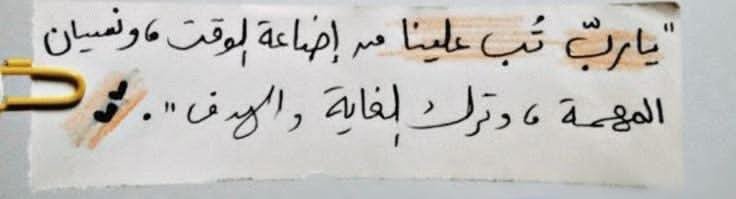 "ياربّ تُب علينا من إضاعة الوقت، ونسيان
المهمة، وترك الغاية والهدف".